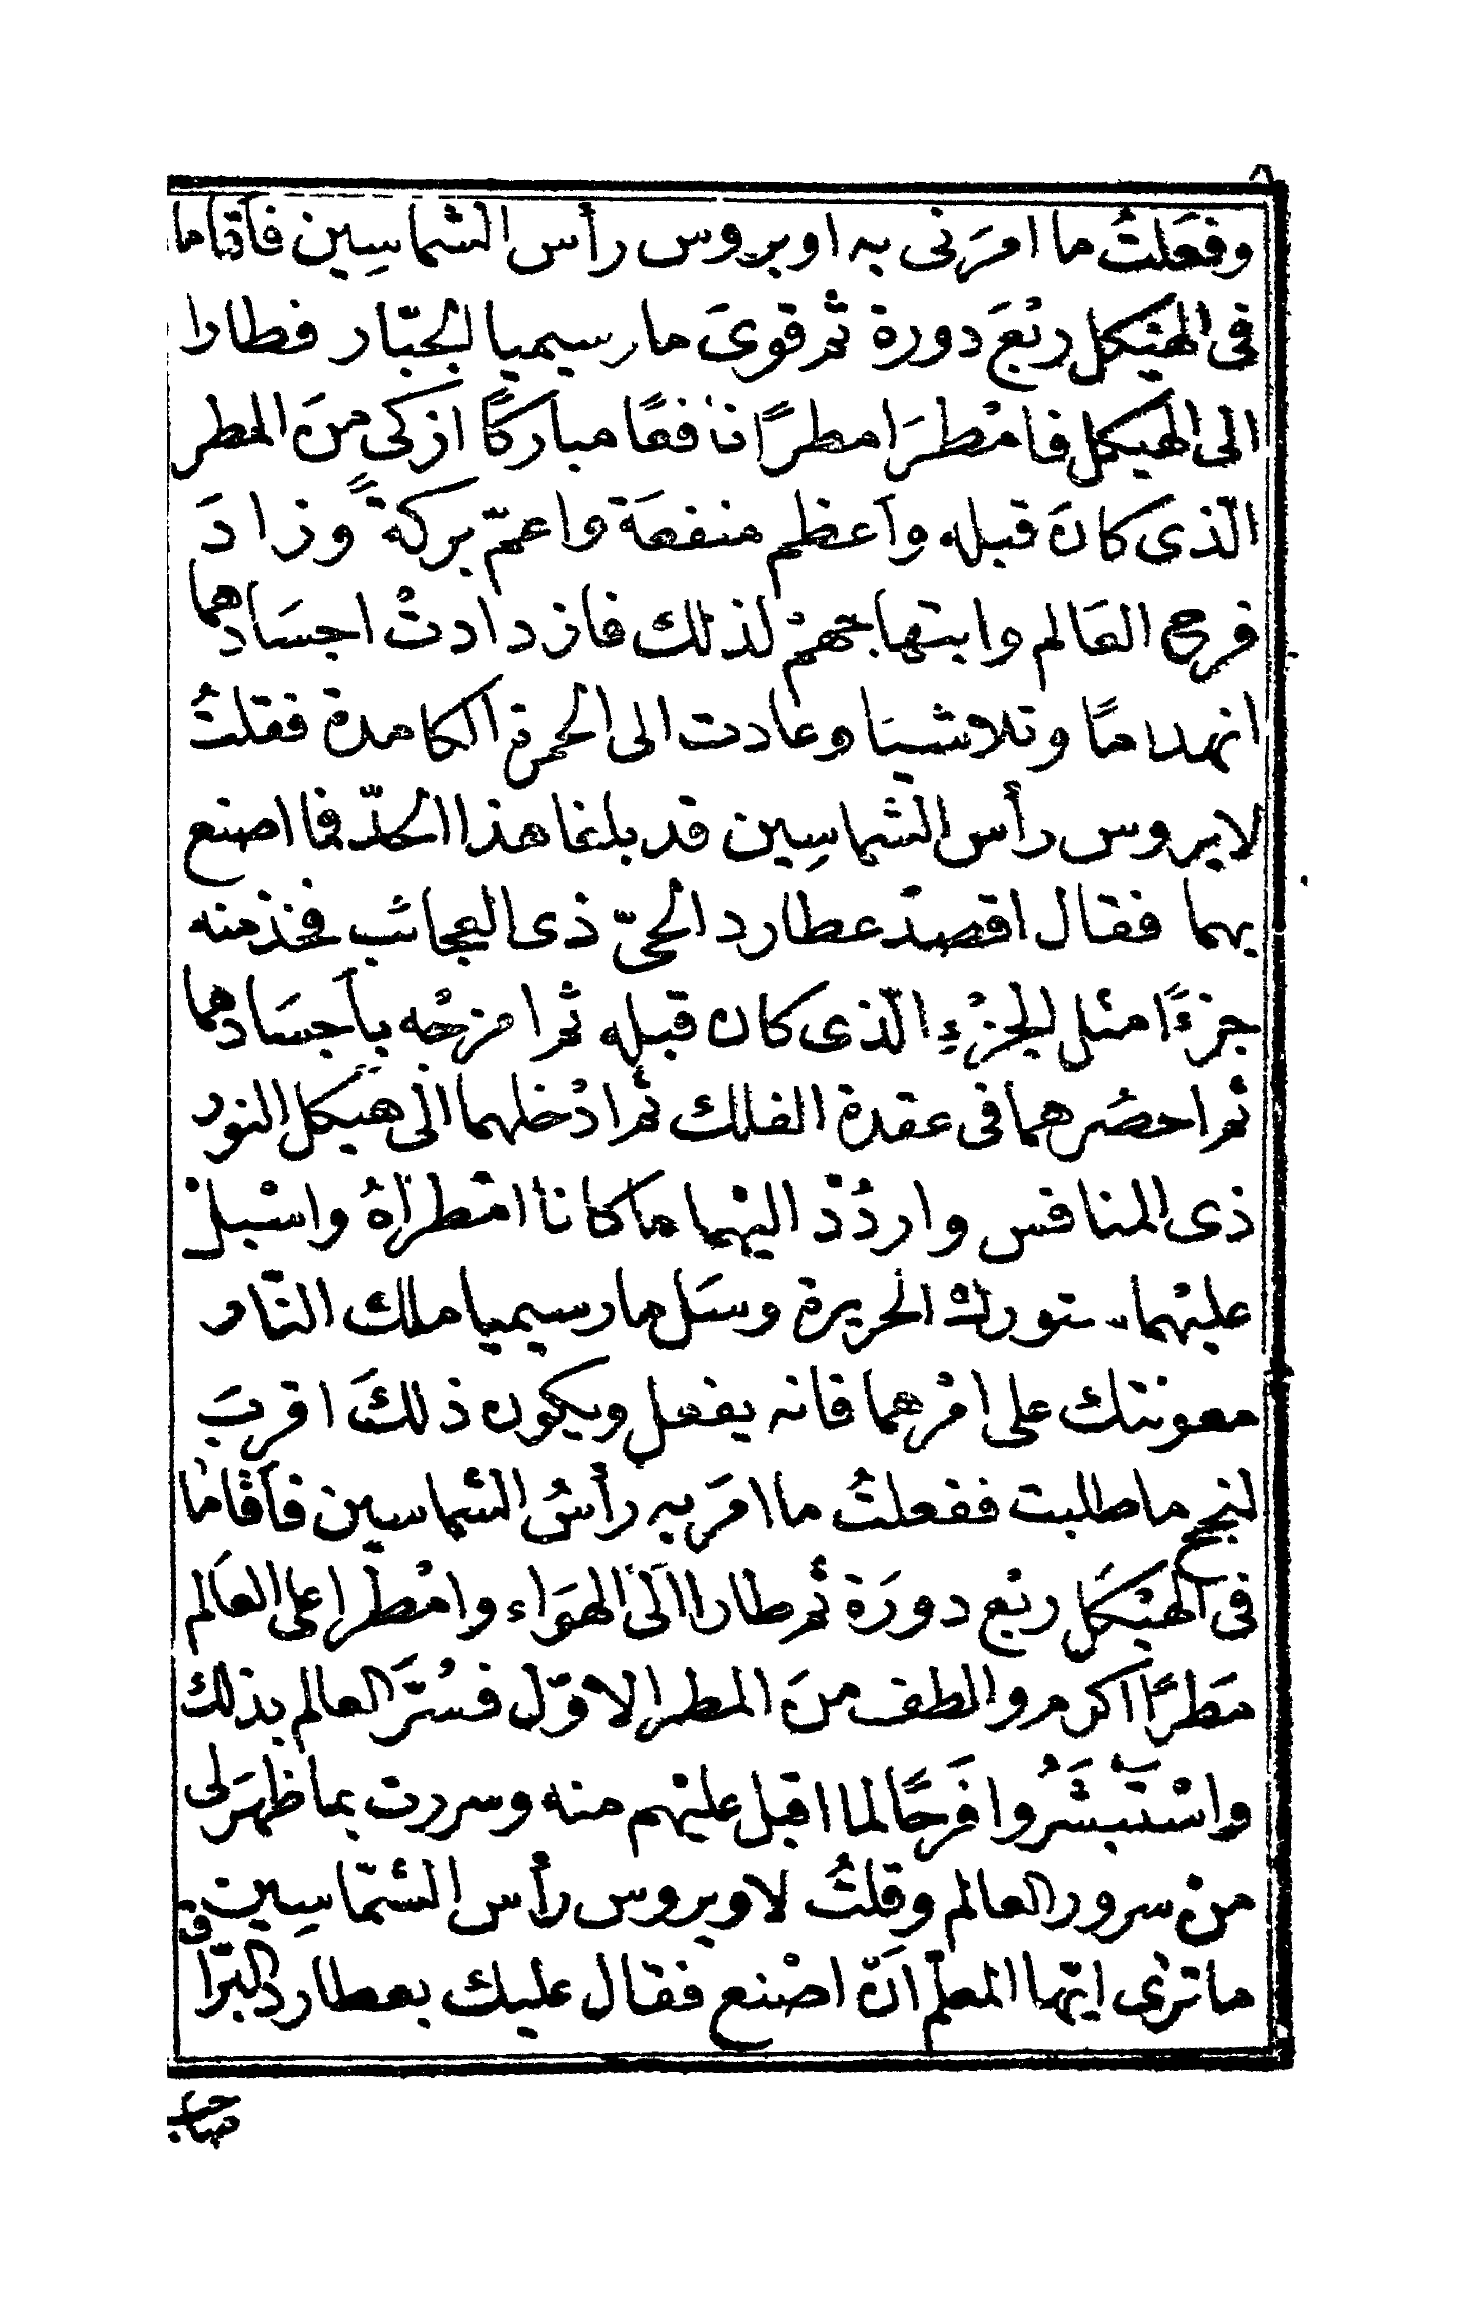 وفعَلتُ ما امرَنى به اوبروس رأس الشماسِين فأقاما
فى الهيْكل ربْعَ دورة ثم قوىَ مارسيميا الجبّار فطارا
الى الهيكل فامْطرَا مطرًا نافعًا مباركًا ازكى منَ المطر
الّذى كانَ قبله وأعظم منفعَة واعمّ بركةً وزادَ
فرح العَالم وابتهاجهمْ لذلك فازدادتْ اجسَادهما
انهدامًا وتلاشيَا وعادت الى الحمرة الكامدة فقلتُ
لابروس رأس الشماسِين قد بلغا هذا الحدّ فما اصنع
بهما فقال اقصدْ عطارد الحىّ ذى العجائب فخذ منه
جزءًا مثل الجزْءِ الّذى كان قبله ثم امزجْه بأجسَادهما
ثم احصُرهما فى عقدة الفلك ثم ادْخلهما الى هيكل النور
ذى المنافس واردُدْ اليْهما ما كانا امْطراهُ واسْبلْ
عليْهما ستورك الحريرة وسَل مارسيميا ملك النّار
معونتك على امْرهما فانه يفعل ويكون ذلكَ اقربَ
لنجح ما طلبت ففعلتُ ما امرَ به رأسُ الشماسين فأقاما
فى الهيْكَل ربْع دورَة ثم طارا الَى الهوَاء وامْطرا على العَالم
مَطرًا أكرم والطف منَ المطر الاوّل فسُرَّ العالم بذلك
واسْتَبشَرُوا فرَحًا لما اقبل عليْهم منه وسررت بما ظهَر لى
منْ سرور العالم وقلتُ لاوبروس رأس الشمّاسِين
ما ترىٰ ايّها المعلّم أنّ اصْنع فقال عليك بعطارد البرّاق
صاحب